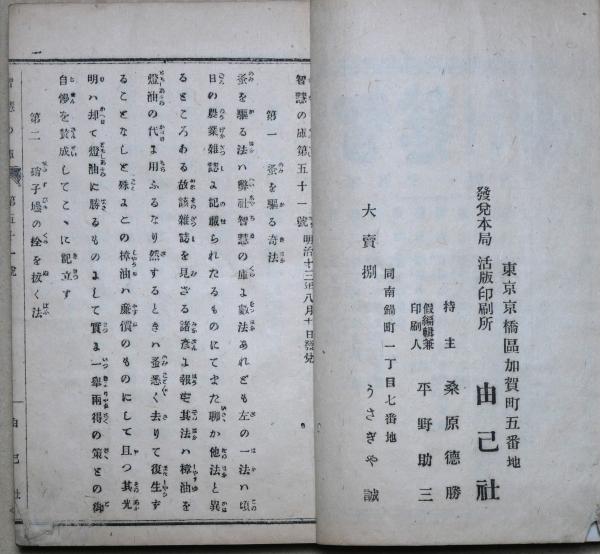 東京京橋區加賀町五番地
發兌本局 活版印刷所 由己社
持主 桑原德勝
假編輯兼印刷人 平野助三
同南鍋町一丁目七番地
大賣捌 うさぎや誠
智慧の庫第五十一號 明治十三年八月十日發兌
第一 蚤を驅る奇法
蚤を驅る法ハ弊社智慧の庫よ數法あれども左の一法ハ頃
日の農業雜誌よ記載られたるものにてまた聊か他法と異
るところある故該雜誌を見ざる諸彦よ報す其法ハ樟油を
燈油の代よ用ふるなり然するときハ蚤悉く去りて復生す
ることなしと殊よこの樟油ハ廉價のものにして且つ其光
明ハ却て燈油に勝るものよして實よ一擧兩得の策との御
自慘を賛成してこゝに記立す
第二 硝子壜の栓を拔く法
一
智慧の庫 第五十一號
由己社